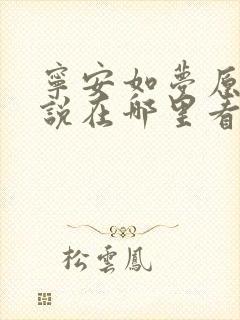 寧安如夢原
說在哪里看
松雲鳳